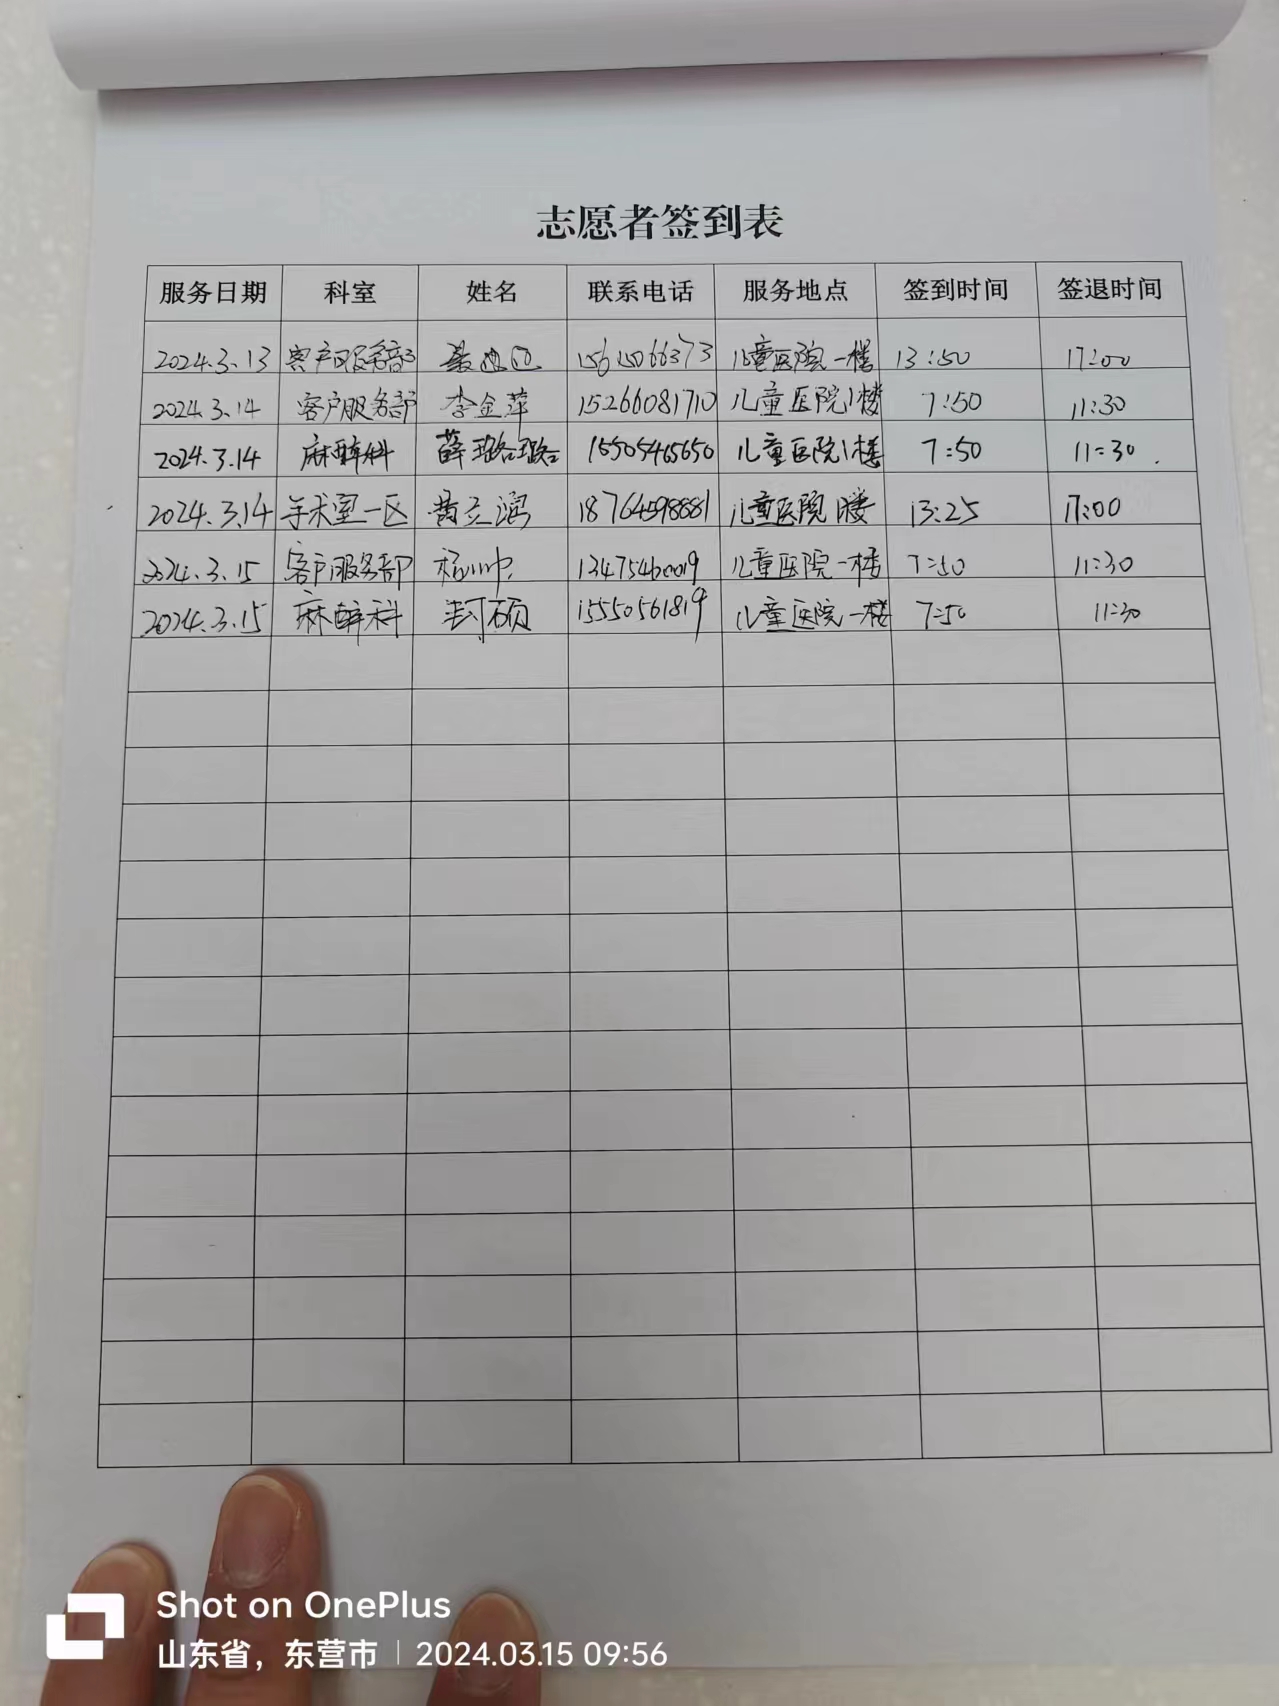 志愿者签到表
服务日期 科室 姓名 联系电话 服务地点 签到时间 签退时间
2024.3.13 客户服务部 15615066373 儿童医院一楼 13:50 17:00
2024.3.14 客户服务部 李金萍 15266081710 儿童医院1楼 7:50 11:30
2024.3.14 麻醉科 薛璐璐 15505465650 儿童医院1楼 7:50 11:30
2024.3.14 手术室一区 18764598881 儿童医院1楼 13:25 17:00
2024.3.15 客户服务部 13475460019 儿童医院一楼 7:50 11:30
2024.3.15 麻醉科 封硕 15550561819 儿童医院一楼 7:50 11:30
Shot on OnePlus
山东省，东营市 | 2024.03.15 09:56